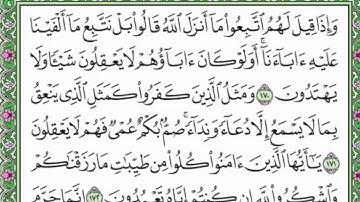 وَإِذَا قِيلَ لَهُمُ ٱتَّبِعُوا۟ مَآ أَنزَلَ ٱللَّهُ قَالُوا۟ بَلْ نَتَّبِعُ مَآ أَلْفَيْنَا
عَلَيْهِ ءَابَآءَنَآ ۗ أَوَلَوْ كَانَ ءَابَآؤُهُمْ لَا يَعْقِلُونَ شَيْـًٔا وَلَا
يَهْتَدُونَ ١٧٠ وَمَثَلُ ٱلَّذِينَ كَفَرُوا۟ كَمَثَلِ ٱلَّذِى يَنْعِقُ
بِمَا لَا يَسْمَعُ إِلَّا دُعَآءً وَنِدَآءً ۚ صُمٌّۢ بُكْمٌ عُمْىٌ فَهُمْ لَا يَعْقِلُونَ
١٧١ يَـٰٓأَيُّهَا ٱلَّذِينَ ءَامَنُوا۟ كُلُوا۟ مِن طَيِّبَـٰتِ مَا رَزَقْنَـٰكُمْ
وَٱشْكُرُوا۟ لِلَّهِ إِن كُنتُمْ إِيَّاهُ تَعْبُدُونَ ١٧٢ إِنَّمَا حَرَّمَ